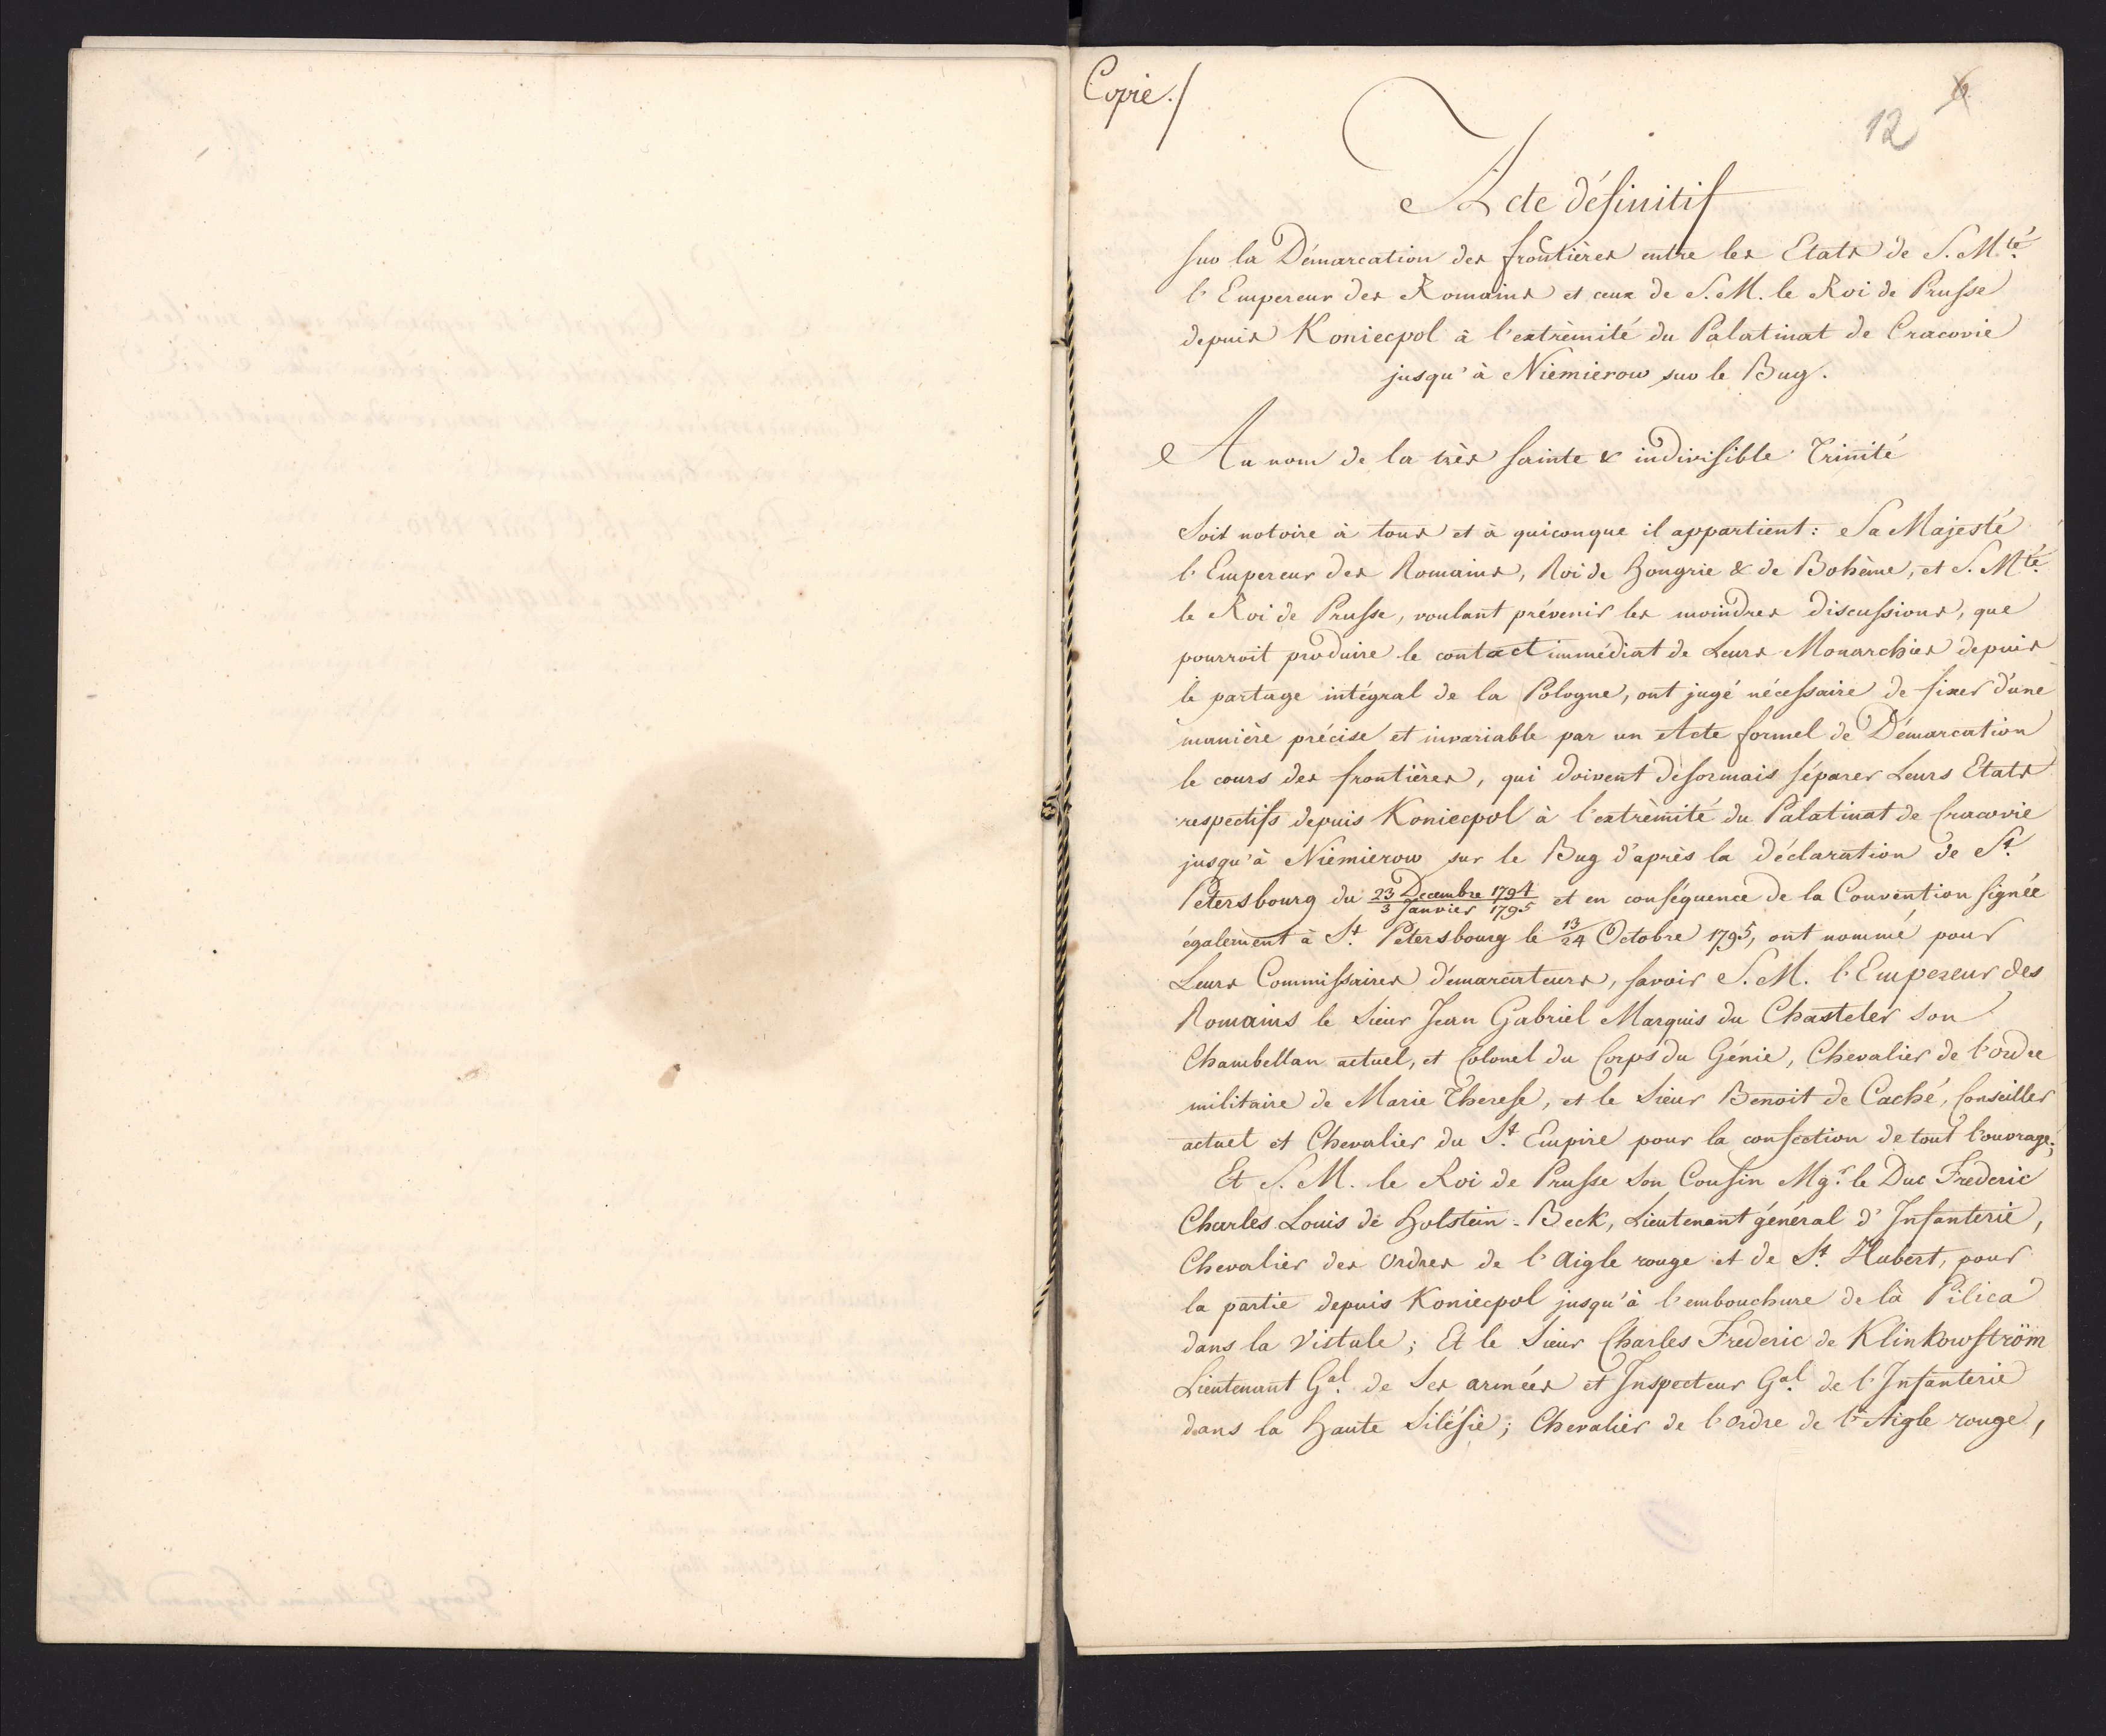 Copie./
12 6
Acte définitif
sur la Démarcation des frontières entre les Etats de S. M.té
l'Empereur des Romains et ceux de S. M. le Roi de Prusse
depuis Koniecpol à l'extrèmité du Palatinat de Cracovie
jusqu'à Niemierow sur le Bug.
Au nom de la très sainte & indivisible Trinité
Soit notoire à tous et à quiconque il appartient: Sa Majesté
l'Empereur des Romains, Roi de Hongrie & de Bohème, et S. Mté.
le Roi de Prusse, voulant prévenir les moindres discussions, que
pourroit produire le contact immédiat de Leurs Monarchies depuis
le partage intégral de la Pologne, ont jugé nécessaire de fixer d'une
manière précise et invariable par un Acte formel de Démarcation
le cours des frontières, qui doivent désormais séparer Leurs Etats
respectifs depuis Koniecpol à l'extrèmité du Palatinat de Cracovie
jusqu'à Niemierow sur le Bug d'après la déclaration de St.
Petersbourg du 23 Decembre 1794/3 Janvier 1795 et en conséquence de la Convention signée
également à St. Petersbourg le 13/24 Octobre 1795, ont nommé pour
Leurs Commissaires démarcateurs, savoir S. M. l'Empereur des
Romains le Sieur Jean Gabriel Marquis du Chasteler son
Chambellan actuel, et Colonel du Corps du Génie, Chevalier de l'ordre
militaire de Marie Therese, et le Sieur Benoit de Caché, Conseiller
actuel et Chevalier du St. Empire pour la confection de tout l'ouvrage;
Et S. M. le Roi de Prusse Son Cousin Mgr. le Duc Frederic
Charles Louis de Holstein-Beck, Lieutenant général d'Infanterie,
Chevalier des Ordres de l'Aigle rouge et de St. Hubert, pour
la partie depuis Koniecpol jusqu'à l'embouchure de la Pilica
dans la Vistule; Et le Sieur Charles Frederic de Klinkowström
Lieutenant Gal. de Ses armées et Inspecteur Gal. de l'Infanterie
dans la Haute Silésie; Chevalier de l'ordre de l'Aigle rouge,